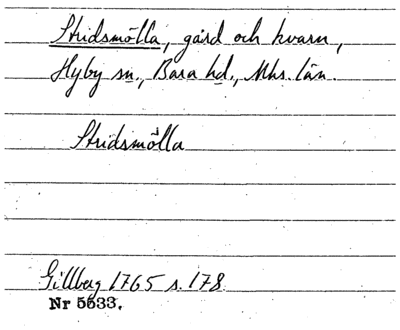 Stridsmölla, gård och kvarn,
Hyby sn., Bara hd., Mhs. län.
Stridsmölla
Gillberg 1765 s. 178
Nr 5533.